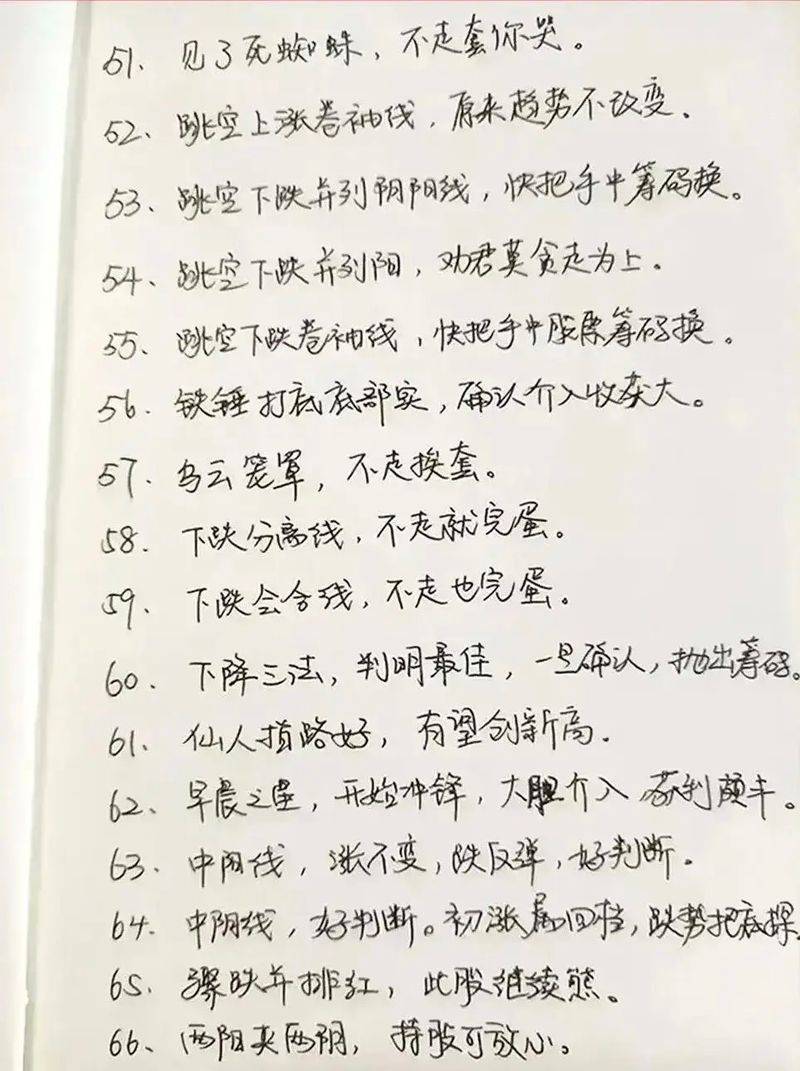 51. 见了死蜘蛛，不走套你哭。
52、跳空上涨卷袖线，原来趋势不改变。
53、跳空下跌并列阴阳线，快把手中筹码换。
54、跳空下跌并列阳，劝君莫贪走为上。
55、跳空下跌卷袖线，快把手中股票筹码换。
56. 铁锤打底底部实，确认介入收获大。
57. 乌云笼罩，不走挨套。
58. 下跌分离线，不走就完蛋。
59. 下跌会合线，不走也完蛋。
60. 下降三法，判明最佳，一旦确认，抛出筹码。
61. 仙人指路好，有望创新高.
62. 早晨之星，开始冲锋，大胆介入 获利颇丰。
63. 中阳线，涨不变，跌反弹，好判断.
64. 中阴线，好判断。初涨属回档，跌势把底探.
65. 骤跌并排红，此股继续熊。
66、两阳夹两阴，持股可放心。